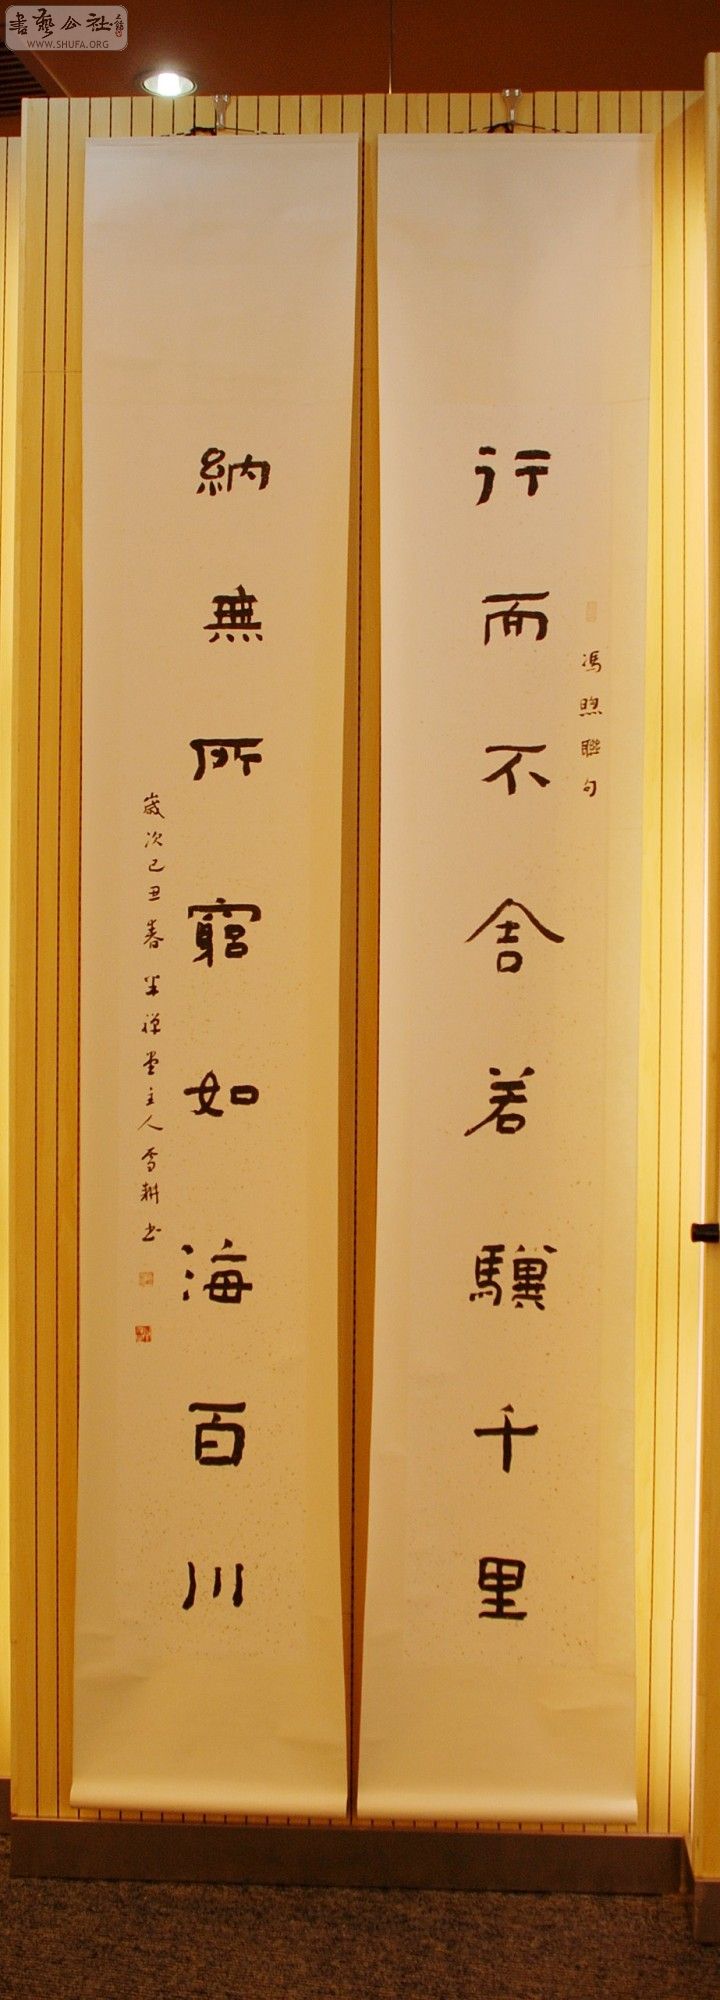 書藝公社
WWW.SHUFA.ORG
行而不舍若驥千里
馮煦聯句
納無所窮如海百川
歲次己丑春半禅堂主人雪耕书